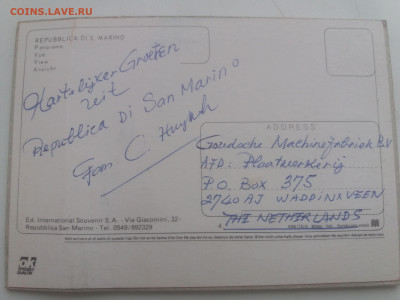 COINS.LAVE.RU
REPUBBLICA DI S. MARINO
Panorama
Vue
View
Ansicht
Hartelijker Groeten
uit
Repubblica Di San Marino
Fam. C.
ADDRESS
Goudsche Machinefabriek B.V
AFD: Plaatwerkerij
P.O. Box 375
2740 AJ WADDINXVEEN
THE NETHERLANDS
Ed. International Souvenir S.A. - Via Giacomini, 32 -
Repubblica San Marino - Tel. 0549/992329